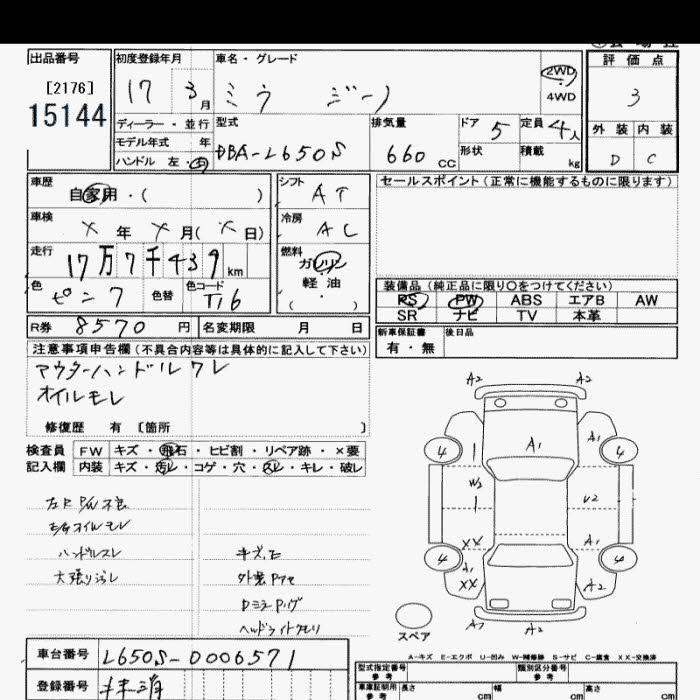 出品番号
[2176]
15144
初度登録年月
17 3月
車名・グレード
ミラ ジーノ
2WD
4WD
評価点
3
外装 内装
D C
ディーラー・並行
モデル年式 年
ハンドル 左・右
型式
DBA-L650S
排気量
660 cc
ドア 5
定員 4人
形状
積載 kg
車歴
自家用・( )
車検
X年 X月(X日)
走行
17万7千439km
色
ピンク
色替
色コード
T16
シフト
AT
冷房
AC
燃料
ガソリン
軽油
( )
セールスポイント(正常に機能するものに限ります)
装備品(純正品に限り○をつけてください)
PS PW ABS エアB AW
SR ナビ TV 本革
R券 8570円
名変期限 月 日
新車保証書
有・無
後日品
注意事項申告欄(不具合内容等は具体的に記入して下さい)
アウターハンドルワレ
オイルモレ
修復歴 有 [箇所 ]
検査員
記入欄
FW キズ・飛石・ヒビ割・リペア跡・×要
内装 キズ・汚レ・コゲ・穴・スレ・キレ・破レ
左R P/W不良
オイルモレ
ハンドルスレ
天張り汚レ
キズ
ヘッドライトクモリ
A2 A2
A1 A1
4 4
W3 U2
XX A1
4 4
A1 XX A2
A2
スペア
A-キズ E-エクボ U-凹み W-補修跡 S-サビ C-腐食 XX-交換済
車台番号 L650S-0006571
登録番号 未済
型式指定番号
参考
類別区分番号
参考
車庫証明用
参考
長さ cm
幅 cm
高さ cm